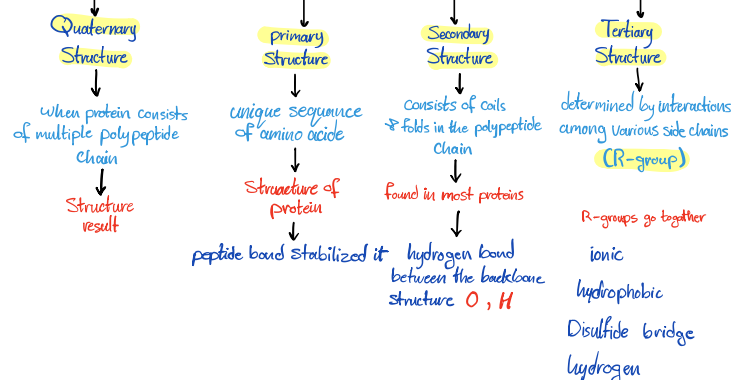 Quaternary
Structure
when protein consists
of multiple polypeptide
chain
Structure
result
primary
Structure
unique sequunce
of amino acide
Structure of
protein
peptide bond stabilized it
Secondary
Structure
consists of coils
& folds in the polypeptide
chain
found in most proteins
hydrogen bond
between the backbone
structure O, H
Tertiary
Structure
determined by interactions
among various side chains
(R-group)
R-groups go together
ionic
hydrophobic
Disulfide bridge
hydrogen